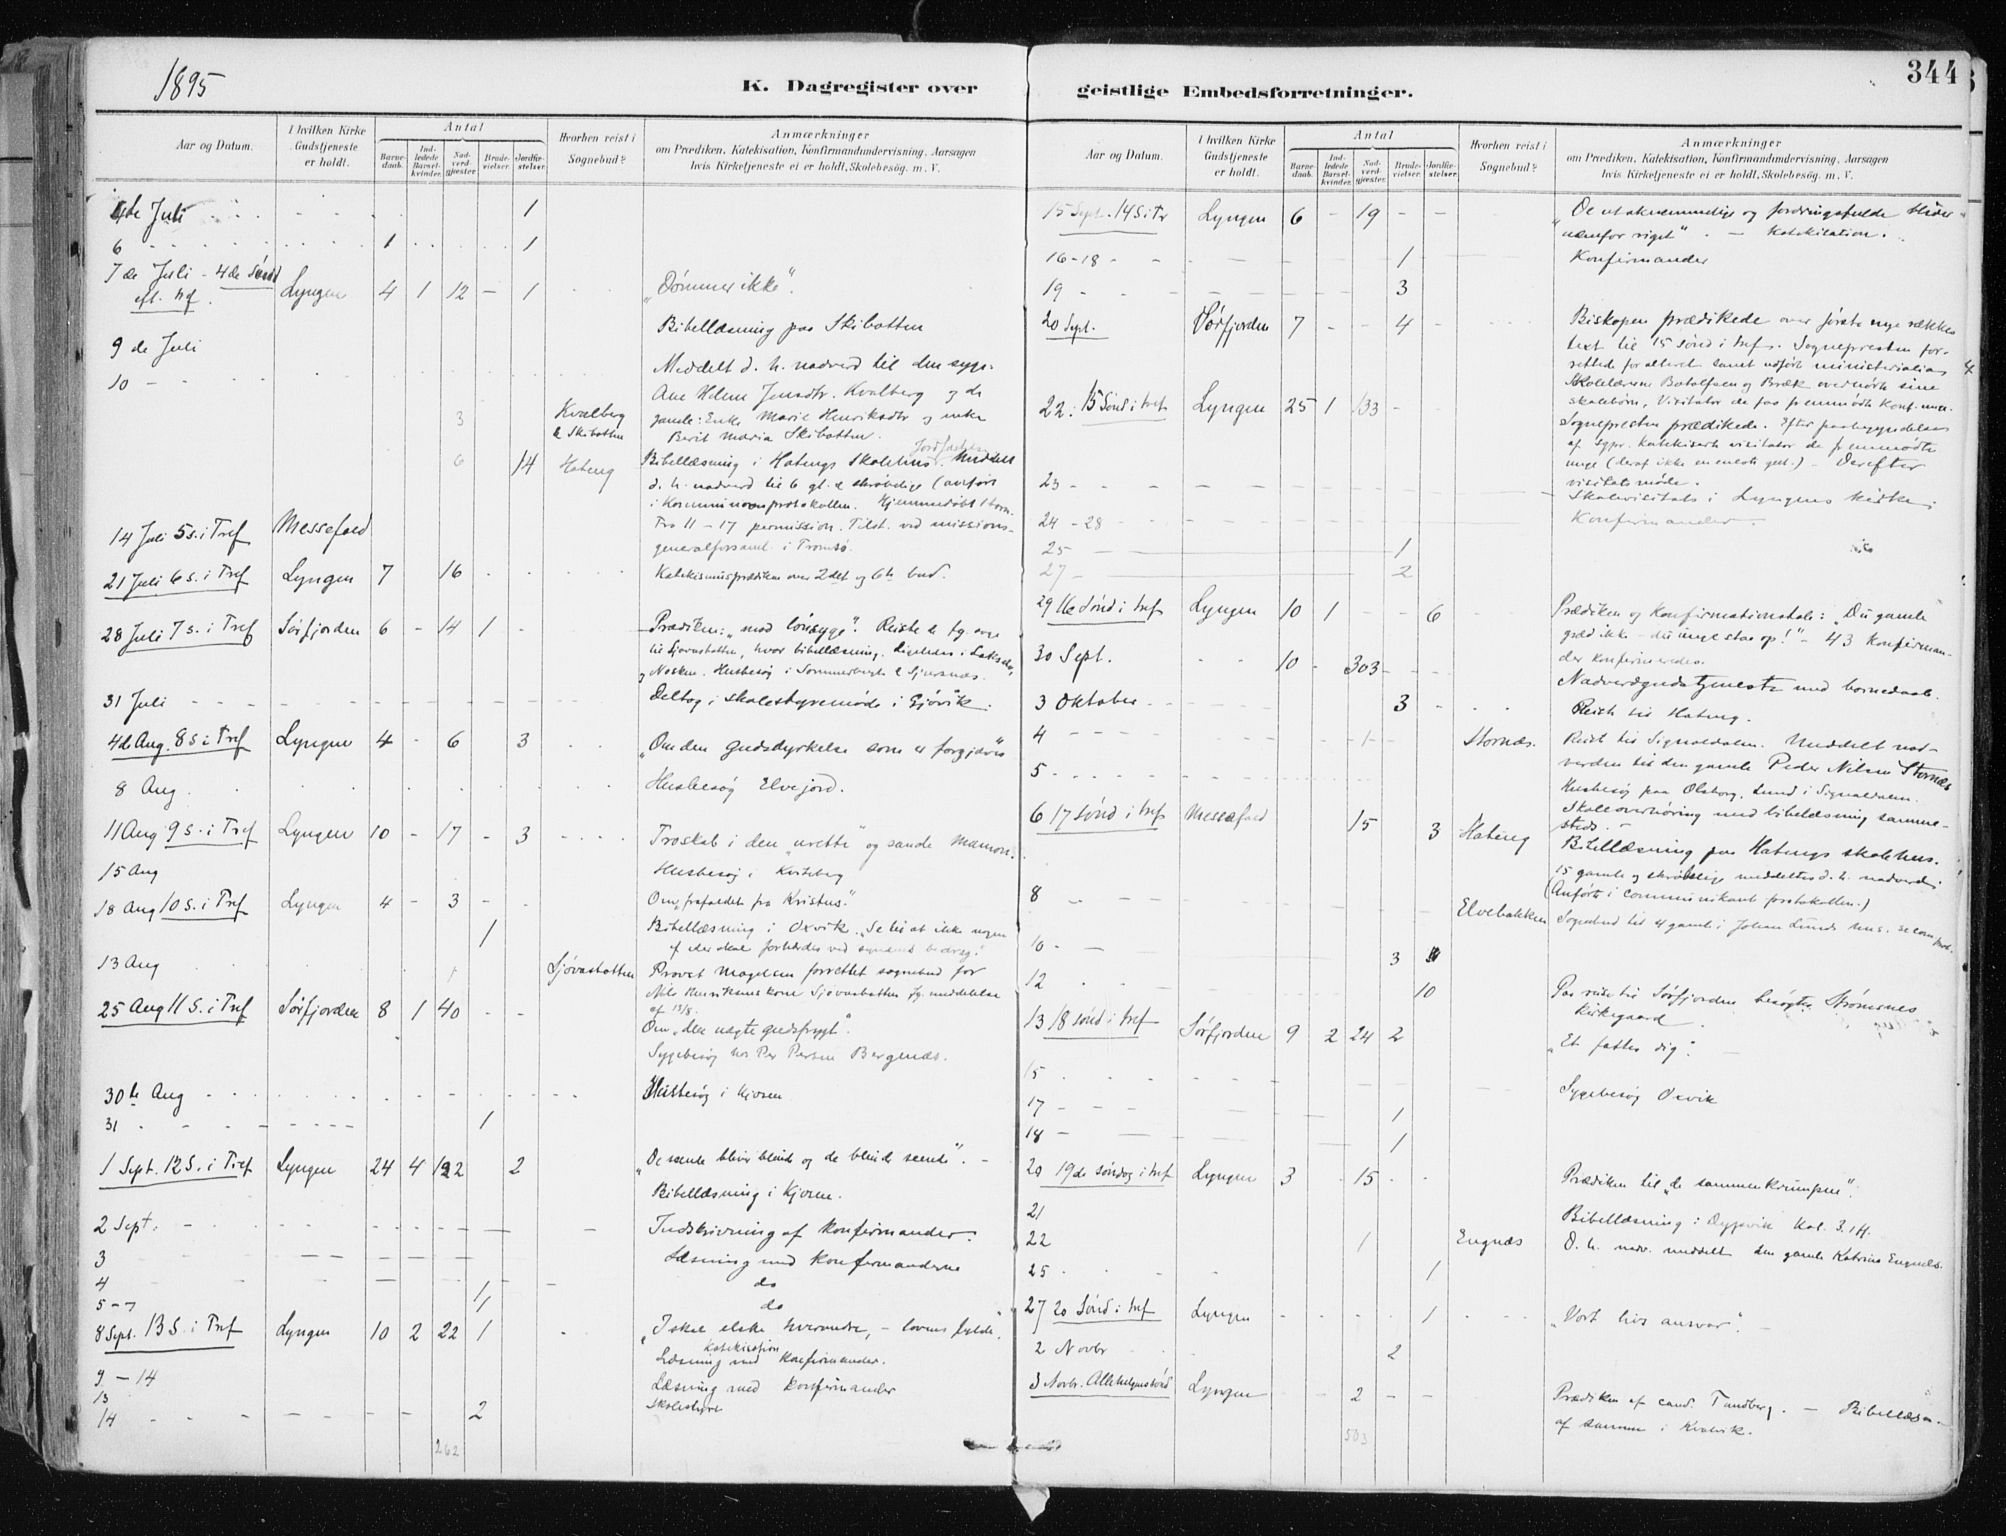 1895
K. Dagregister over geistlige Embedsforretninger.
344
Aar og Datum.
I hvilken Kirke Gudstjeneste er holdt.
Antal
Barnedaab.
Indledede Barselkvinder.
Nadverdgjæster.
Brudevielser.
Jordfæstelser.
Hvorhen reist i Sognebud?
Anmærkninger
om Prædiken, Katekisation, Konfirmandundervisning, Aarsagen
hvis Kirketjeneste ei er holdt, Skolebesøg. m. V.
4de Juli 1
6 1 1
7de Juli - 4de Sønd
eft. trf. Lyngen 4 1 12 - 1 "Dømmer ikke".
Bibellæsning paa Skibotten
9de Juli
10 - Meddelt d. h. nadverd til den syge
Ane Helene Jensdtr. Kvalberg og de
3 Kvalberg gamle: Enke Marie Henriksdtr og enke
& Skibotten Berit Maria Skibotten.
Jordfæstelse
6 14 Hateng Bibellæsning i Hatengs Skolehus. Meddelt
d. h. nadverd til 6 gl. & skrøbelige (anført
i Kommunionprotokollen. Hjemmedøbt 1 barn.
14 Juli 5 s. i Tref Messefald Fra 11-17 permission. Tilst. ved missions-
generalforsaml. i Tromsø.
21 Juli 6 s. i Tref Lyngen 7 16 Katekismusprædiken over 2det og 6te bud.
28 Juli 7 s. i Tref Sørfjorden 6 - 14 1 - Prædiken: "mod lønsyge". Reiste
til Sjøvasbotten, hvor bibellæsning.
31 Juli Deltog i skolestyremøde i Gjøvik.
4de Aug. 8 s i Tref Lyngen 4 - 6 3 "Om den gudsdyrkelse som er forgjæves
8 Aug Husbesøg Elvejord.
11 Aug 9 s. i Tref Lyngen 10 - 17 - 3 Troskab i den "urette" og sande Mamon.
15 Aug Husbesøg i Kviteberg
18 Aug 10 s. i Tref Lyngen 4 - 3 - - Om "frafaldet fra Kristus".
1 Bibellæsning i Oxvik. "Se til at ikke nogen
af eder skal forhærdes ved syndens bedrag".
13 Aug 1 Sjøvasbotten Provst Magelsen forrettet sognebud for
25 Aug 11 s. i Tref Sørfjorden 8 1 40 - - Nils Henriksens kone Sjøvasbotten flg. meddelelse
af 13/8.
Om "den ægte gudsfrygt".
Sygebesøg hos Per Persen Bergenæs.
30te Aug Husbesøg i Kjosen
31 1
1 Sept. 12 S. i Tref Lyngen 24 4 122 2 "De seende blive blinde og de blinde seende". -
Bibellæsning i Kjosen.
2 Sept. Indskrivning af konfirmander.
3 Læsning med konfirmanderne
4 1 do
5-7 1 do
8 Sept. 13 S. i Tref Lyngen 10 2 22 1 "I skal elske hverandre, - lovens fylde".
Katekisation
Læsning med konfirmander.
9 - 14 Læsning med konfirmander
13 Skolestyre
14 2
262
Aar og Datum.
I hvilken Kirke Gudstjeneste er holdt.
Antal
Barnedaab.
Indledede Barselkvinder.
Nadverdgjæster.
Brudevielser.
Jordfæstelser.
Hvorhen reist i Sognebud?
Anmærkninger
om Prædiken, Katekisation, Konfirmandundervisning, Aarsagen
hvis Kirketjeneste ei er holdt, Skolebesøg. m. V.
15 Sept. 14 S i Tr Lyngen 6 - 19 - - "De utaknemmelige og fordringsfulde
udenfor riget" - Katekisation.
16-18 1 Konfirmander
19 3
20 Sept. Sørfjorden 7 - - 4 Biskopen prædikede over første nye rækkes
text til 15 sønd i tref. Sognepresten for-
rettede for alteret samt udførte ministerialia 4
Skolelærerne Botolfsen og Bræk overhørte sine
22. 15 Sønd i tref Lyngen 25 1 133 - skolebørn, Visitator de faa fremmødte konf. unge.
Sognepresten prædikede. Efter paabegyndelsen
af sgpr. katekiserte visitator de fremmødte
unge (deraf ikke en eneste gut.) - Derefter
visitatsmøde.
23 - Skolevisitats i Lyngens kirke.
24-28 Konfirmander.
25 1
27 2
29 16 Sønd i tref Lyngen 10 1 - - 6 Prædiken og konfirmationstale: "Du gamle
græd ikke - du unge staa op!" - 43 konfirman-
der konfirmeredes.
30 Sept. 10 - 303 - Nadverdgudstjeneste med barnedaab.
3 Oktober 3 - Reist til Hateng.
4 1 Stornæs. Reist til Signaldalen. Meddelt nad-
5 verden til den gamle Peder Nilsen Stornæs
Husbesøg paa Olsborg, Lund i Signaldalen.
6 17 sønd i tref Messefald 15 3 Hateng Skoleoverhøring med bibellæsning samme-
steds. -
Bibellæsning paa Hatengs skolehus.
15 gamle og skrøbelige meddeltes d. h. nadverd.
(Anført i communikant protokollen.)
8 Elvebakken Sognebud til 4 gamle i Johan Lunds hus.
10 3
12 10 Paa reise til Sørfjorden besøgtes Strømsnes
kirkegaard
13 18 sønd i tref Sørfjorden 9 2 24 2 "Et fattes dig". -
15 Sygebesøg Oxvik
17 1
18 1
20 19de søndag i tref Lyngen 3 15 Prædiken til "de sammenkrumpne".
21 Bibellæsning i Dypvik Kol. 3.14.
22 1 Engnæs D. h. nadv. meddelt den gamle Katrine Engnæs.
25 1
27 20 Sønd i tref Lyngen 1 "Vort livs ansvar". -
2 Novbr 2
3 Novbr. Allehelgenssønd Lyngen - - 2 - - Prædiken af cand. Tandberg. - Bibellæsn.
af samme i Kvalvik.
503